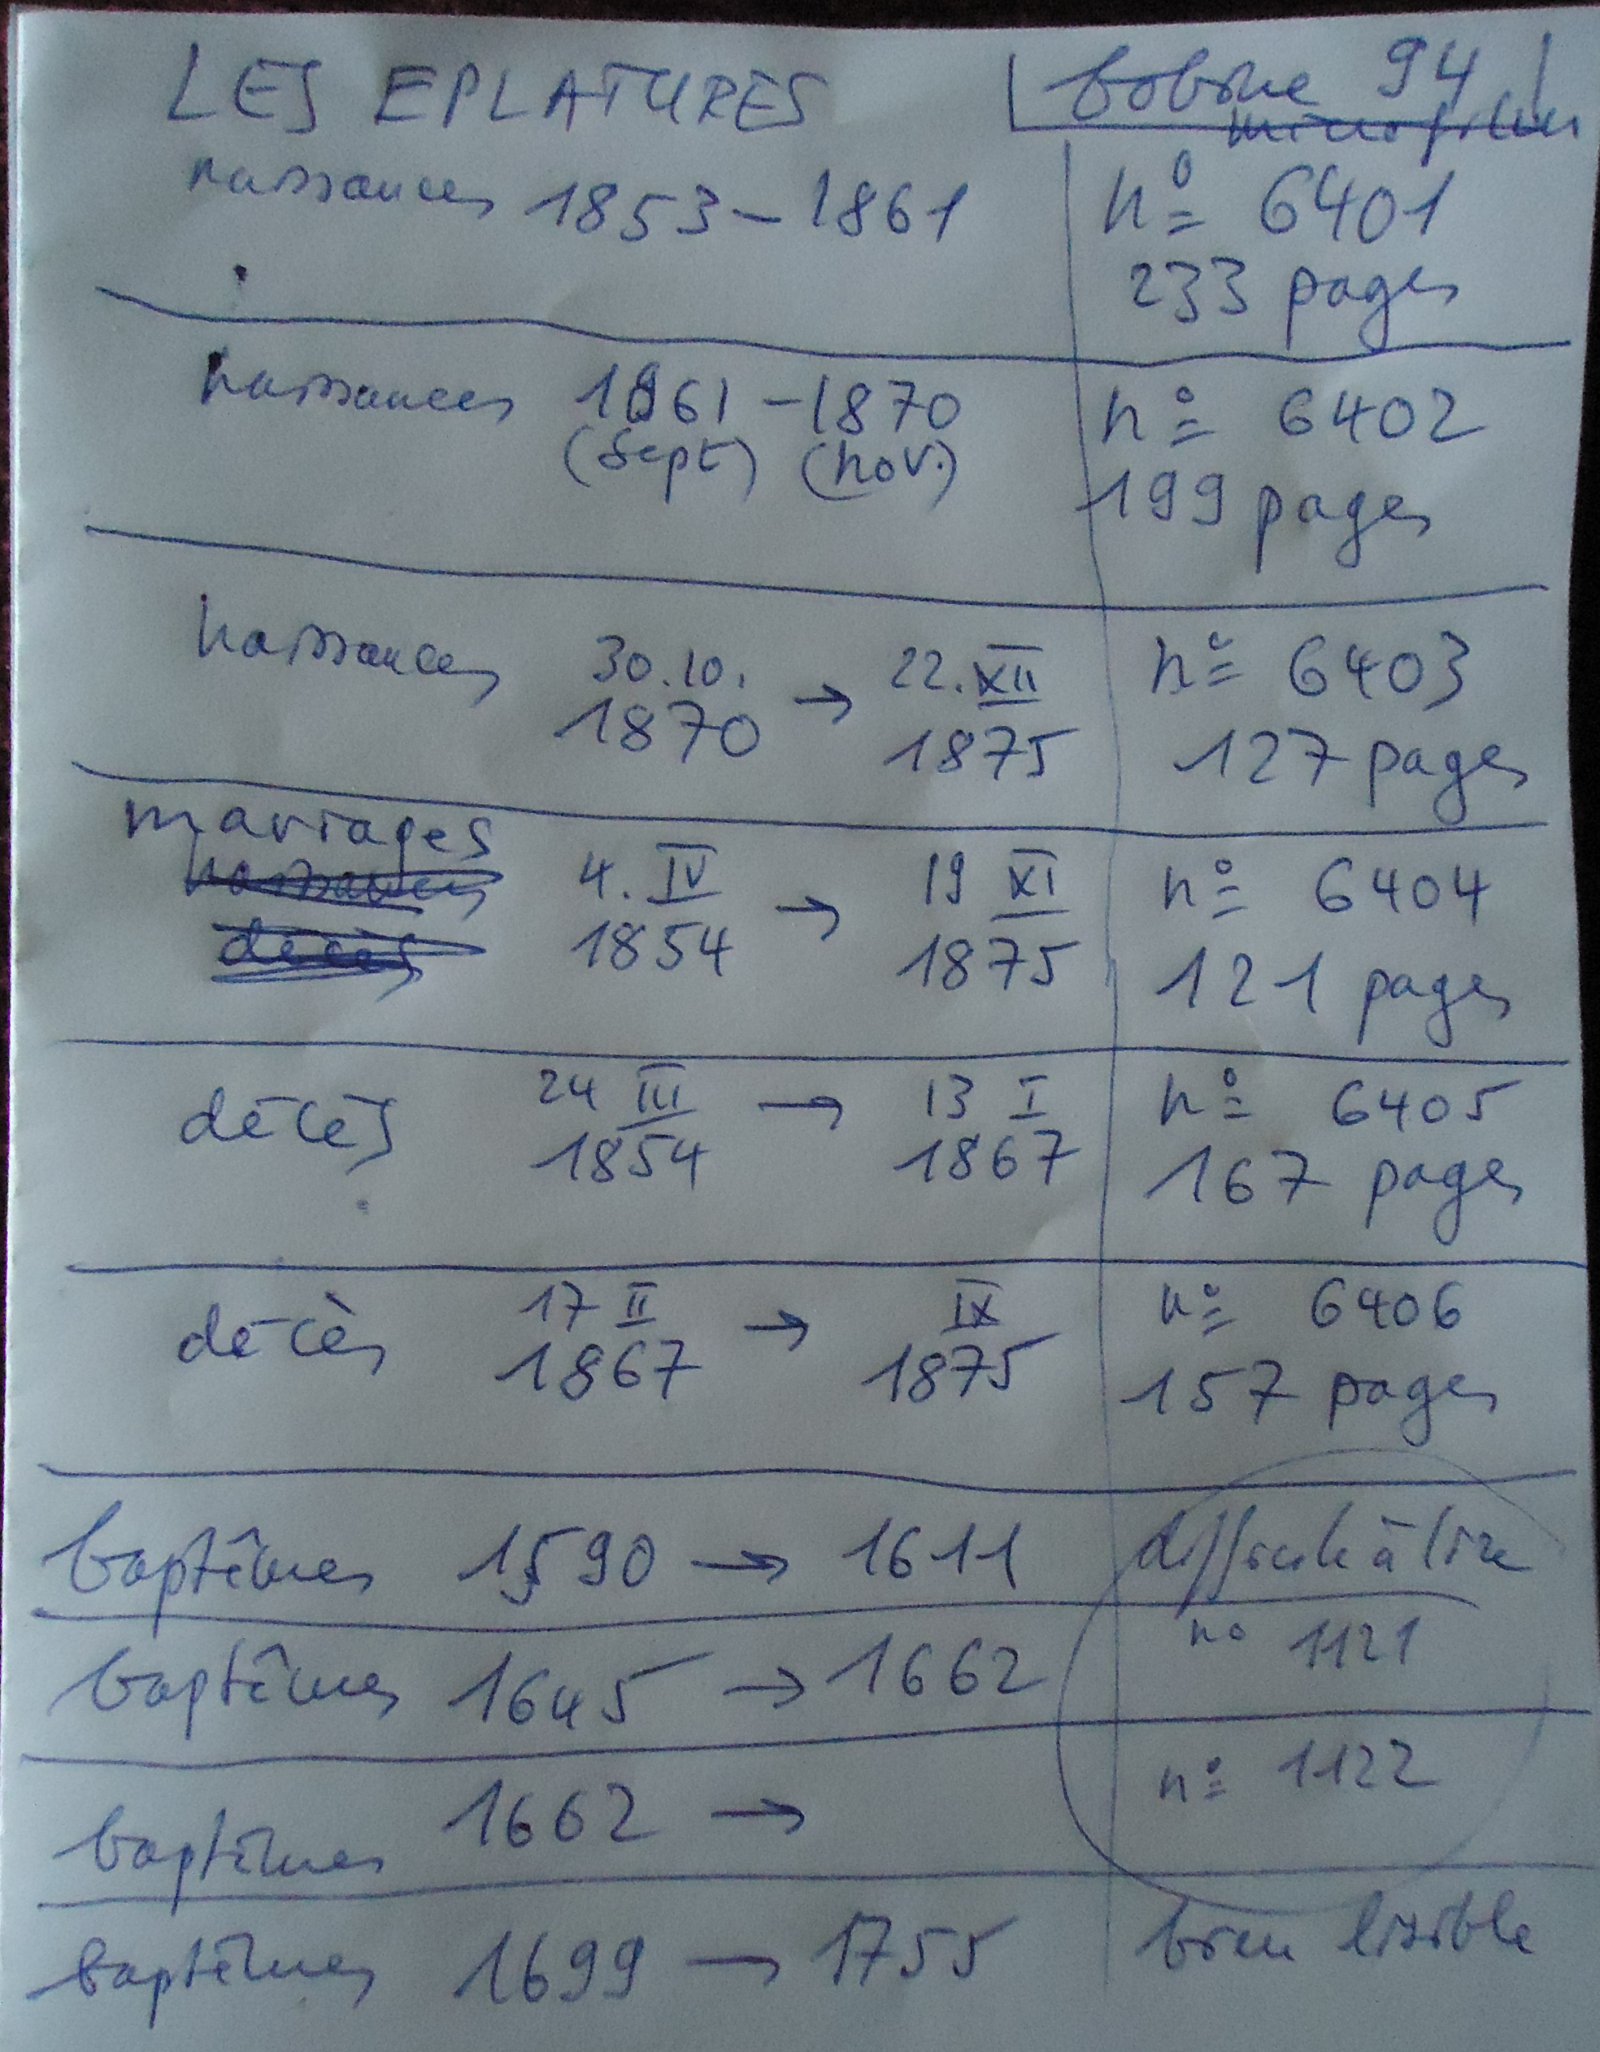 LES EPLATURES bobine 94
microfilm
naissances 1853 – 1861 nº 6401
233 pages
naissances 1861 – 1870 nº 6402
(Sept) (nov.) 199 pages
naissances 30.10. 1870 → 22.XII 1875 nº 6403
127 pages
mariages
naissances 4. IV 1854 → 19 XI 1875 nº 6404
décès 121 pages
décès 24 III 1854 → 13 I 1867 nº 6405
167 pages
décès 17 II 1867 → IX 1875 nº 6406
157 pages
baptêmes 1590 → 1611 difficile à lire
baptêmes 1645 → 1662 no 1121
baptêmes 1662 → nº 1122
baptêmes 1699 → 1755 bien lisible